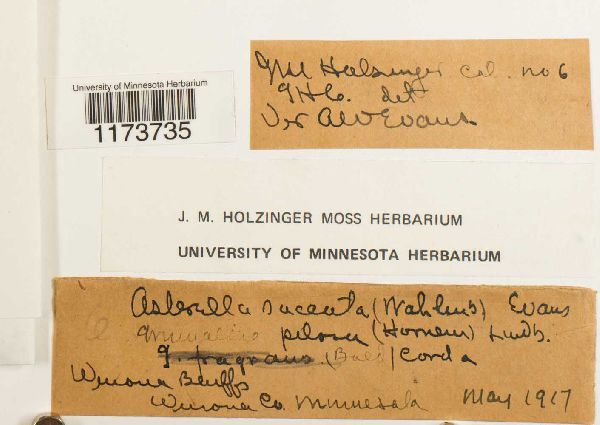 University of Minnesota Herbarium
1173735
JM Holzinger col. no 6
GHC. det
Ver AWEvans
J. M. HOLZINGER MOSS HERBARIUM
UNIVERSITY OF MINNESOTA HERBARIUM
Asterella saccata (Wahlenb) Evans
Grimaldia pilosa (Hornem) Lindb.
G. fragrans (Balb) Corda
Winona Bluffs
Winona Co. Minnesota May 1917